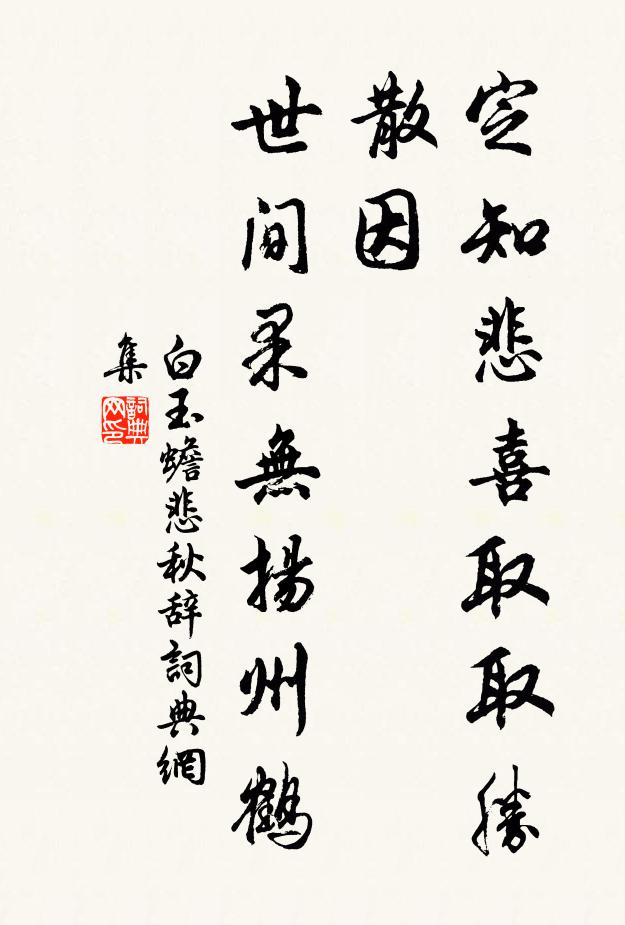 定知悲喜取取勝
散因
世间果無揚州鶴
白玉蟾悲秋辞詞典網
集
詞典
网印